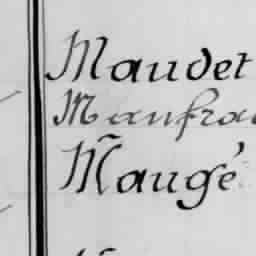 Maudet
Manfra
Maugé